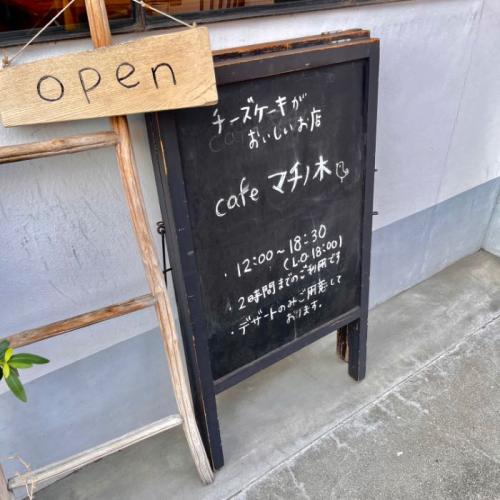 open
チーズケーキが
おいしいお店
cafe マチノ木
・12:00〜18:30
(L.O 18:00)
・2時間までのご利用です
・デザートのみご用意して
おります。